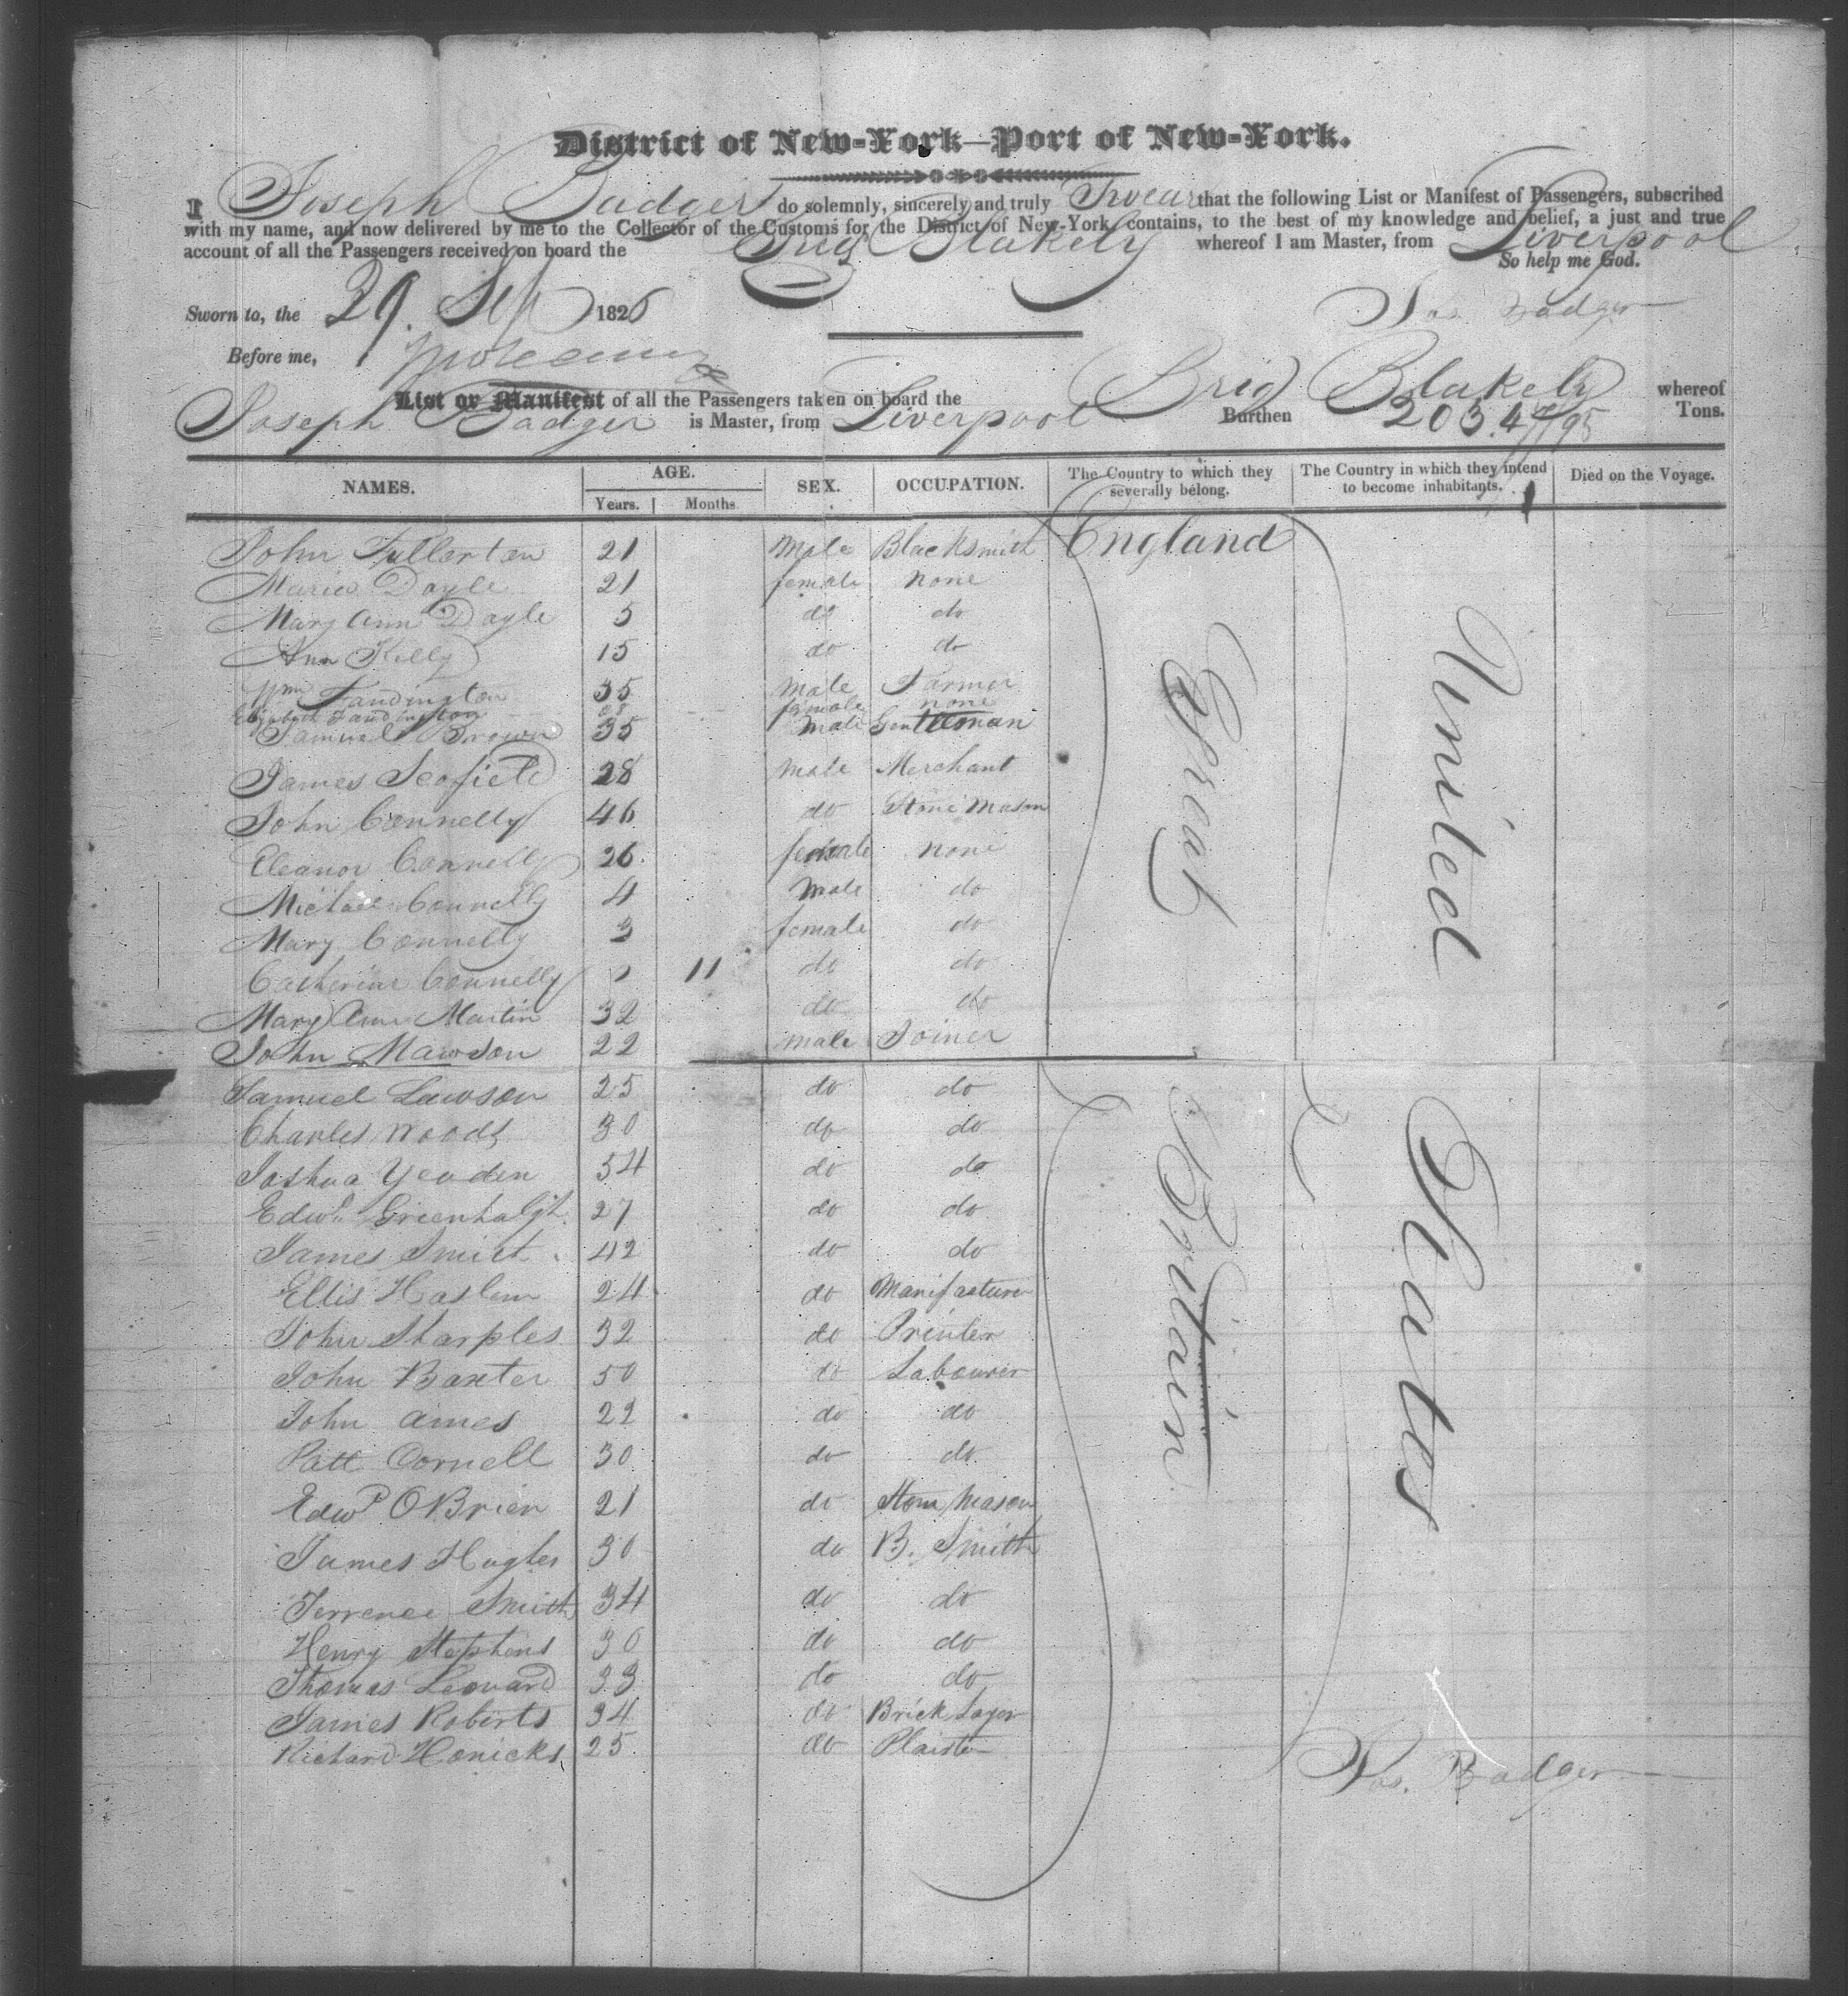 District of New-York—Port of New-York.
I Joseph Badger do solemnly, sincerely and truly Swear that the following List or Manifest of Passengers, subscribed
with my name, and now delivered by me to the Collector of the Customs for the District of New-York, contains, to the best of my knowledge and belief, a just and true
account of all the Passengers received on board the Brig Blakely whereof I am Master, from Liverpool
So help me God.
Sworn to, the 29. Sep 1826 Jos. Badger
Before me,
List or Manifest of all the Passengers taken on board the Brig Blakely whereof
Joseph Badger is Master, from Liverpool Burthen 203 47/95 Tons.
NAMES. AGE. Years. Months. SEX. OCCUPATION. The Country to which they severally belong. The Country in which they intend to become inhabitants. Died on the Voyage.
John Fullerton 21 Male Blacksmith England
Maria Doyle 21 female none
Mary Ann Doyle 5 do do
Ann Kelly 15 do do
Wm Fandington 35 Male Farmer
Elizabeth Fandington female none
Samuel Brown 35 male Gentleman
James Scofield 28 male Merchant
John Connelly 46 do Stone Mason
Eleanor Connelly 26 female none
Michael Connelly 4 male do
Mary Connelly 3 female do
Catherine Connelly 11 do do
Mary Ann Martin 32 do do
John Mawson 22 male Joiner
Samuel Lawson 25 do do
Charles Woods 30 do do
Joshua Yeaden 34 do do
Edwd Greenhalgh 27 do do
James Smith 42 do do
Ellis Haslam 24 do Manifacturer
John Sharples 32 do Printer
John Baxter 50 do Labourer
John Ames 22 do do
Patt Cornell 30 do do
Edwd OBrien 21 do Stone Mason
James Hughes 30 do B. Smith
Terrence Smith 34 do do
Henry Stephens 30 do do
Thomas Leonard 33 do do
James Roberts 34 do Brick Layer
Richard Honicks 25 do Plaister
Great Britain
United States
Jos. Badger